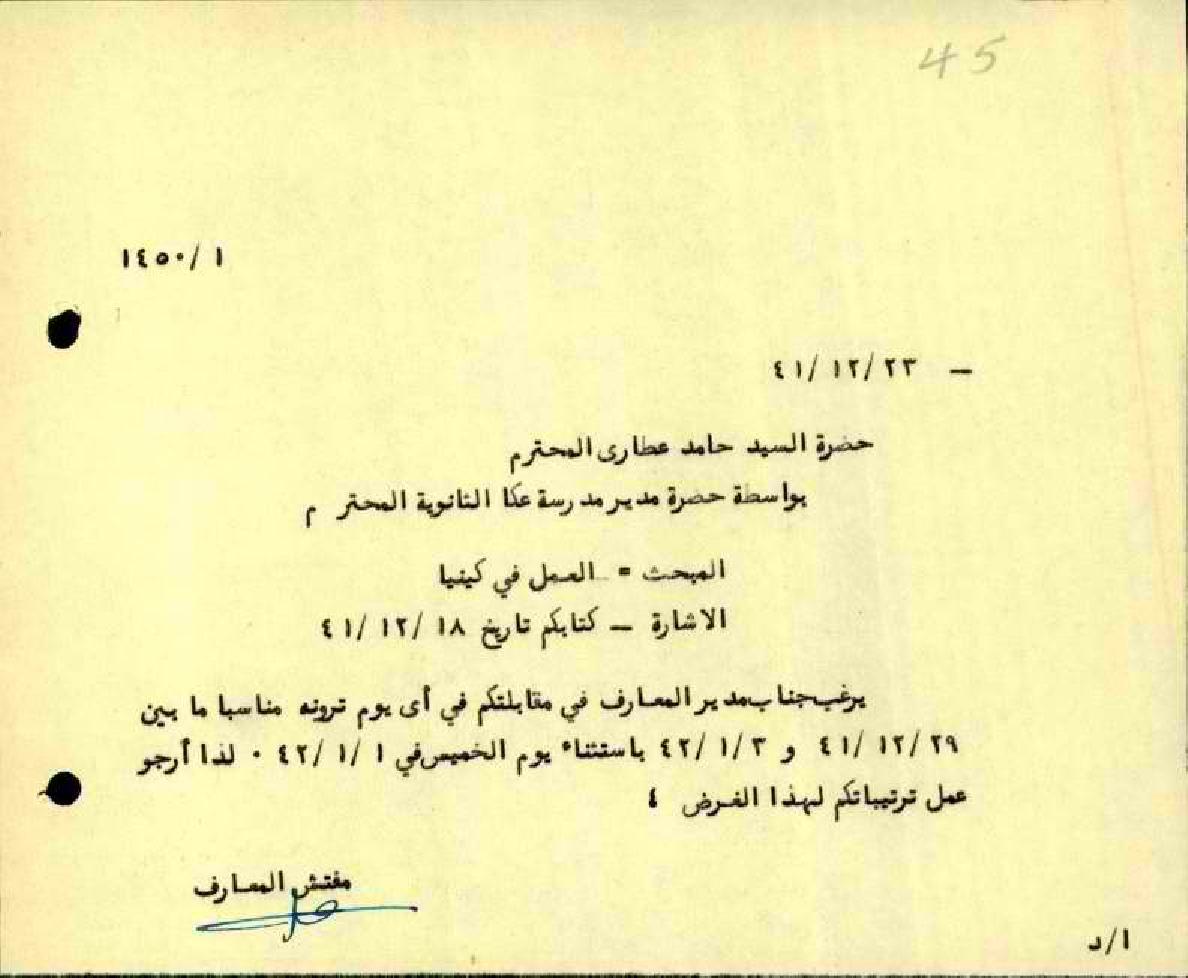 45
١٤٥٠/ ١
— ٢٣/ ١٢/ ٤١
حضرة السيد حامد عطارى المحترم
بواسطة حضرة مدير مدرسة عكا الثانوية المحتر م
المبحث = العمل في كينيا
الاشارة — كتابكم تاريخ ١٨ /١٢/ ٤١
يرغب جناب مدير المعارف في مقابلتكم في أى يوم ترونه مناسبا ما بين
٢٩/ ١٢/ ٤١ و ٣/ ١/ ٤٢ باستثناء يوم الخميس في ١ /١/ ٤٢ ٠ لذا أرجو
عمل ترتيباتكم لهذا الغرض ٤
مفتش المعارف
ا/د